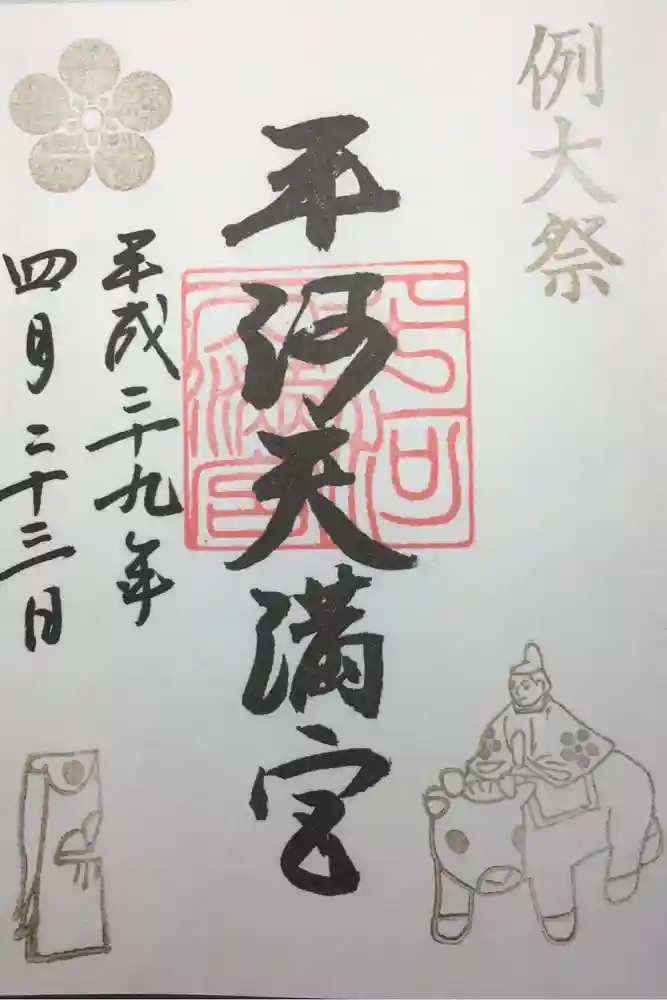 例大祭
平河天満宮
平成二十九年
四月二十三日